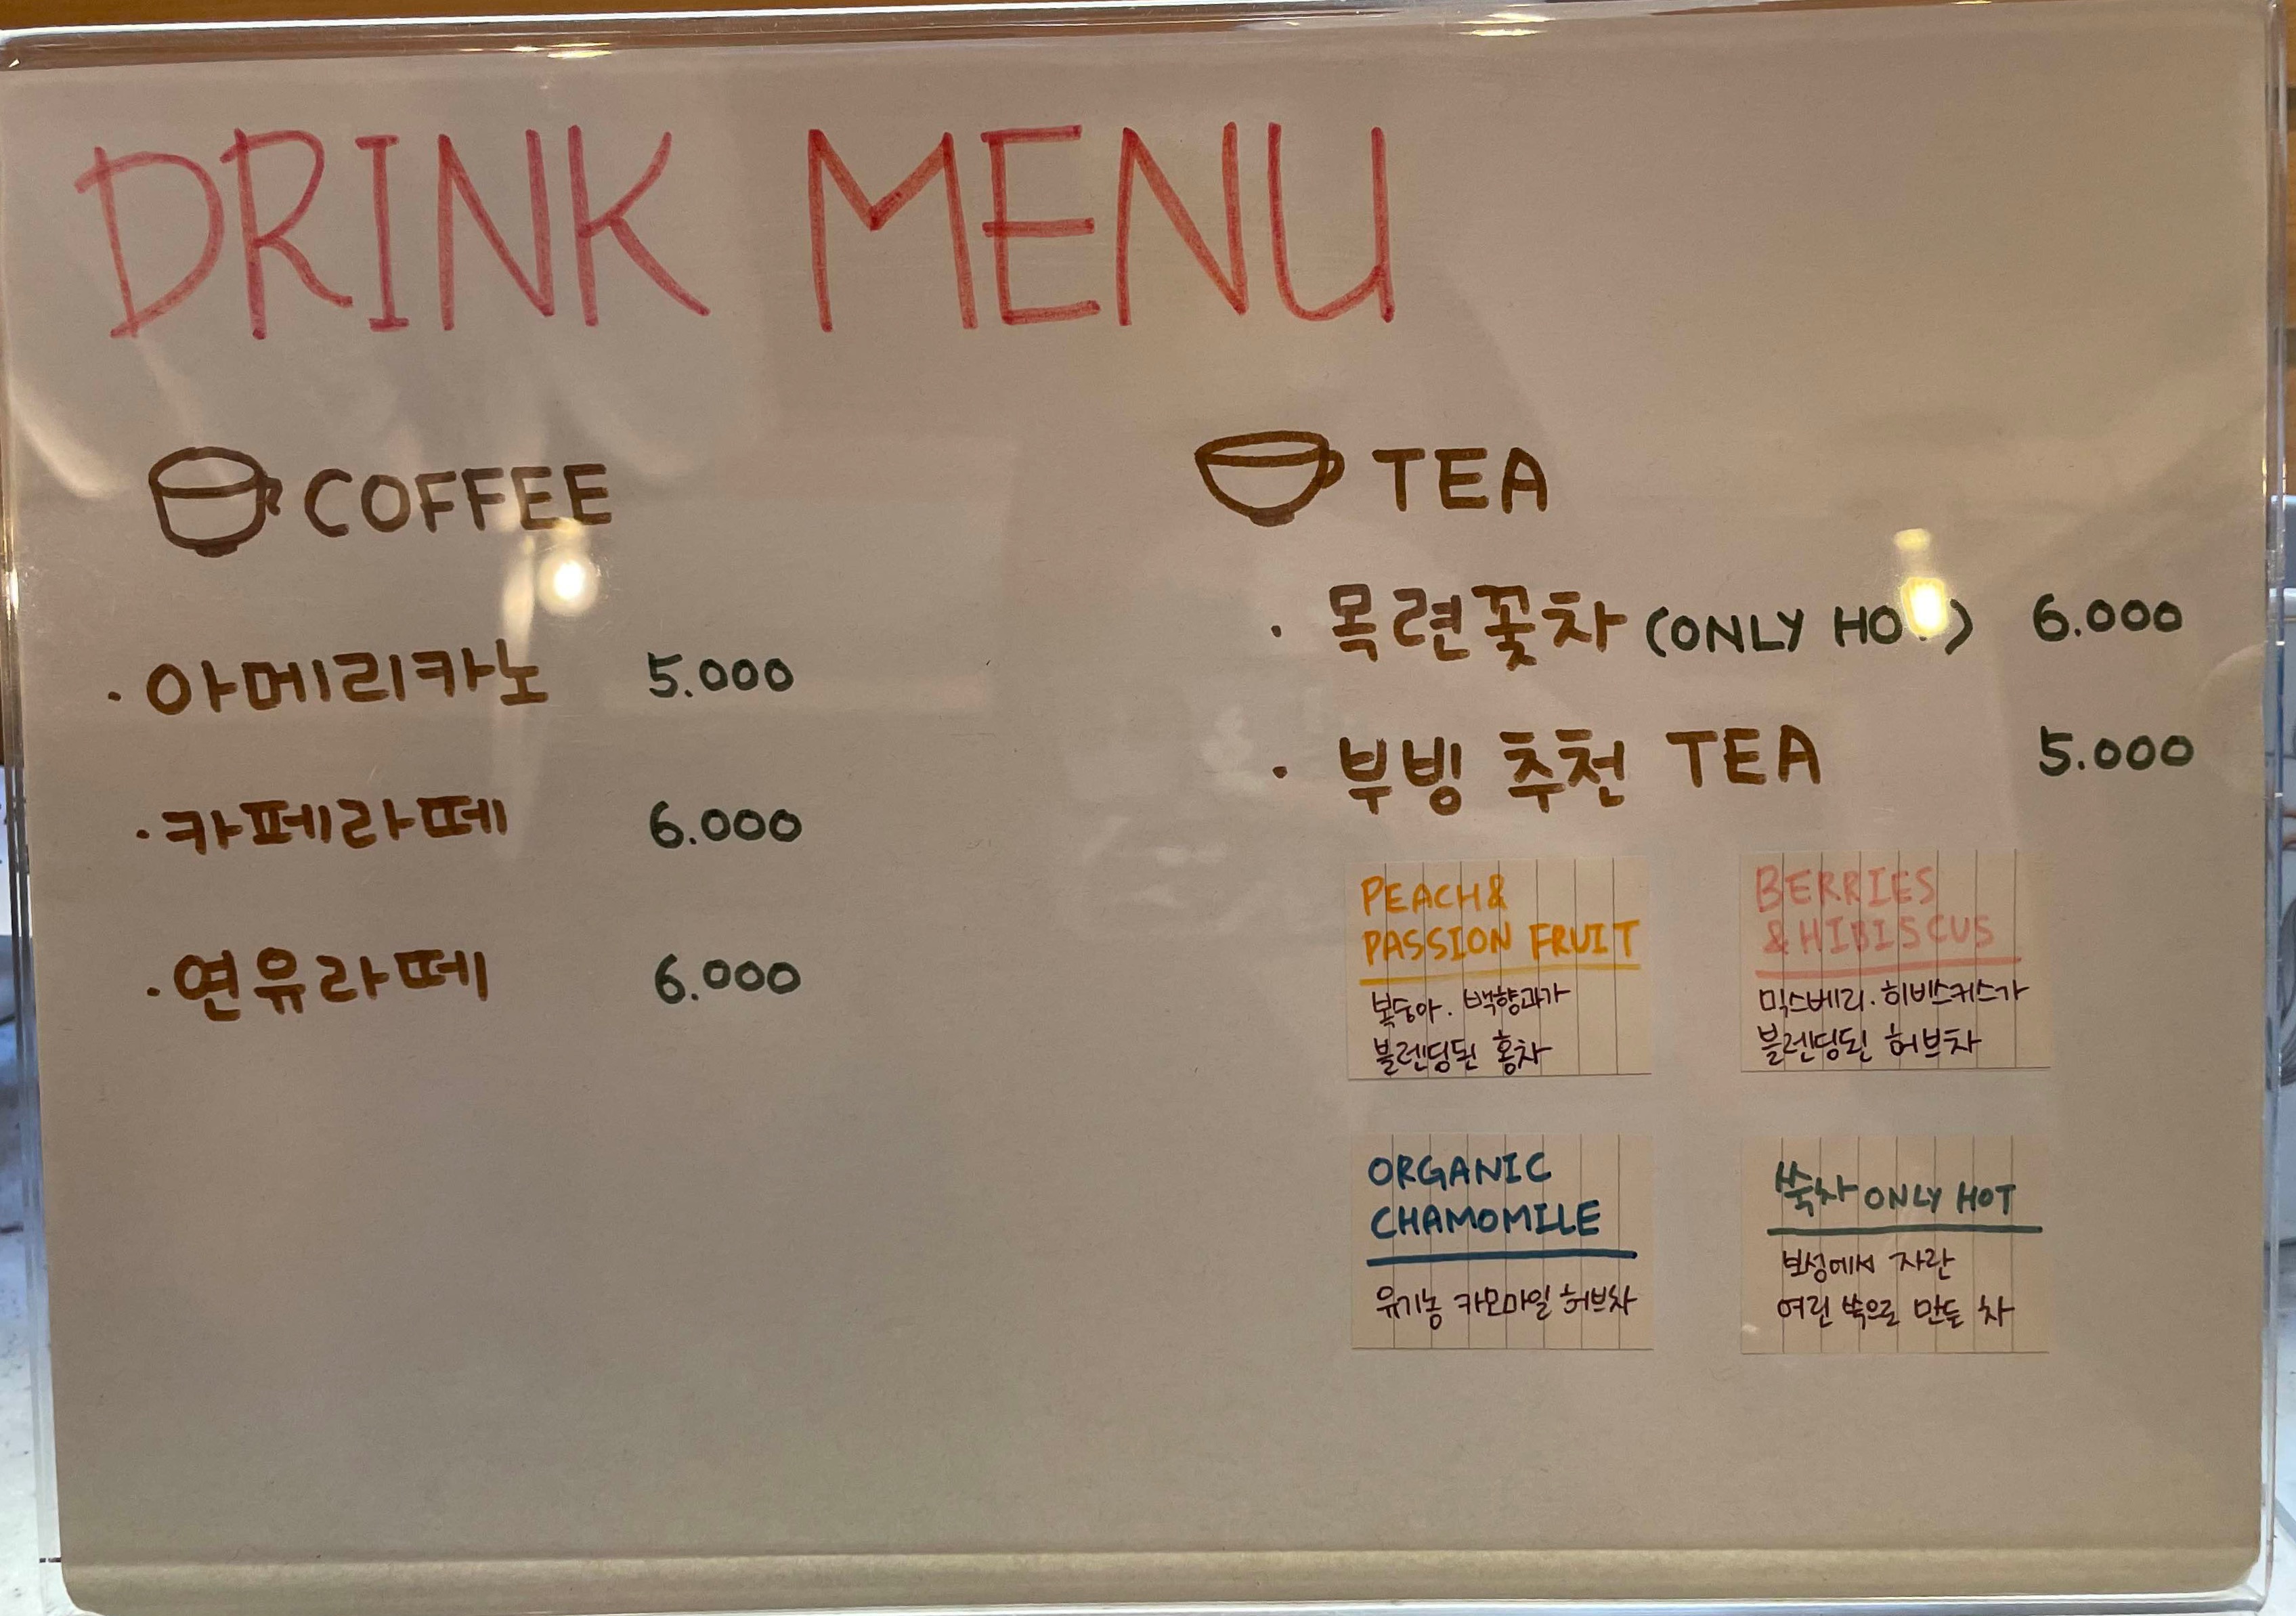 DRINK MENU
COFFEE
· 아메리카노 5.000
· 카페라떼 6.000
· 연유라떼 6.000
TEA
· 목련꽃차 (ONLY HOT) 6.000
· 부빙 추천 TEA 5.000
PEACH &
PASSION FRUIT
복숭아. 백향과가
블렌딩된 홍차
BERRIES
& HIBISCUS
믹스베리. 히비스커스가
블렌딩된 허브차
ORGANIC
CHAMOMILE
유기농 카모마일 허브차
쑥차 ONLY HOT
보성에서 자란
여린 쑥으로 만든 차